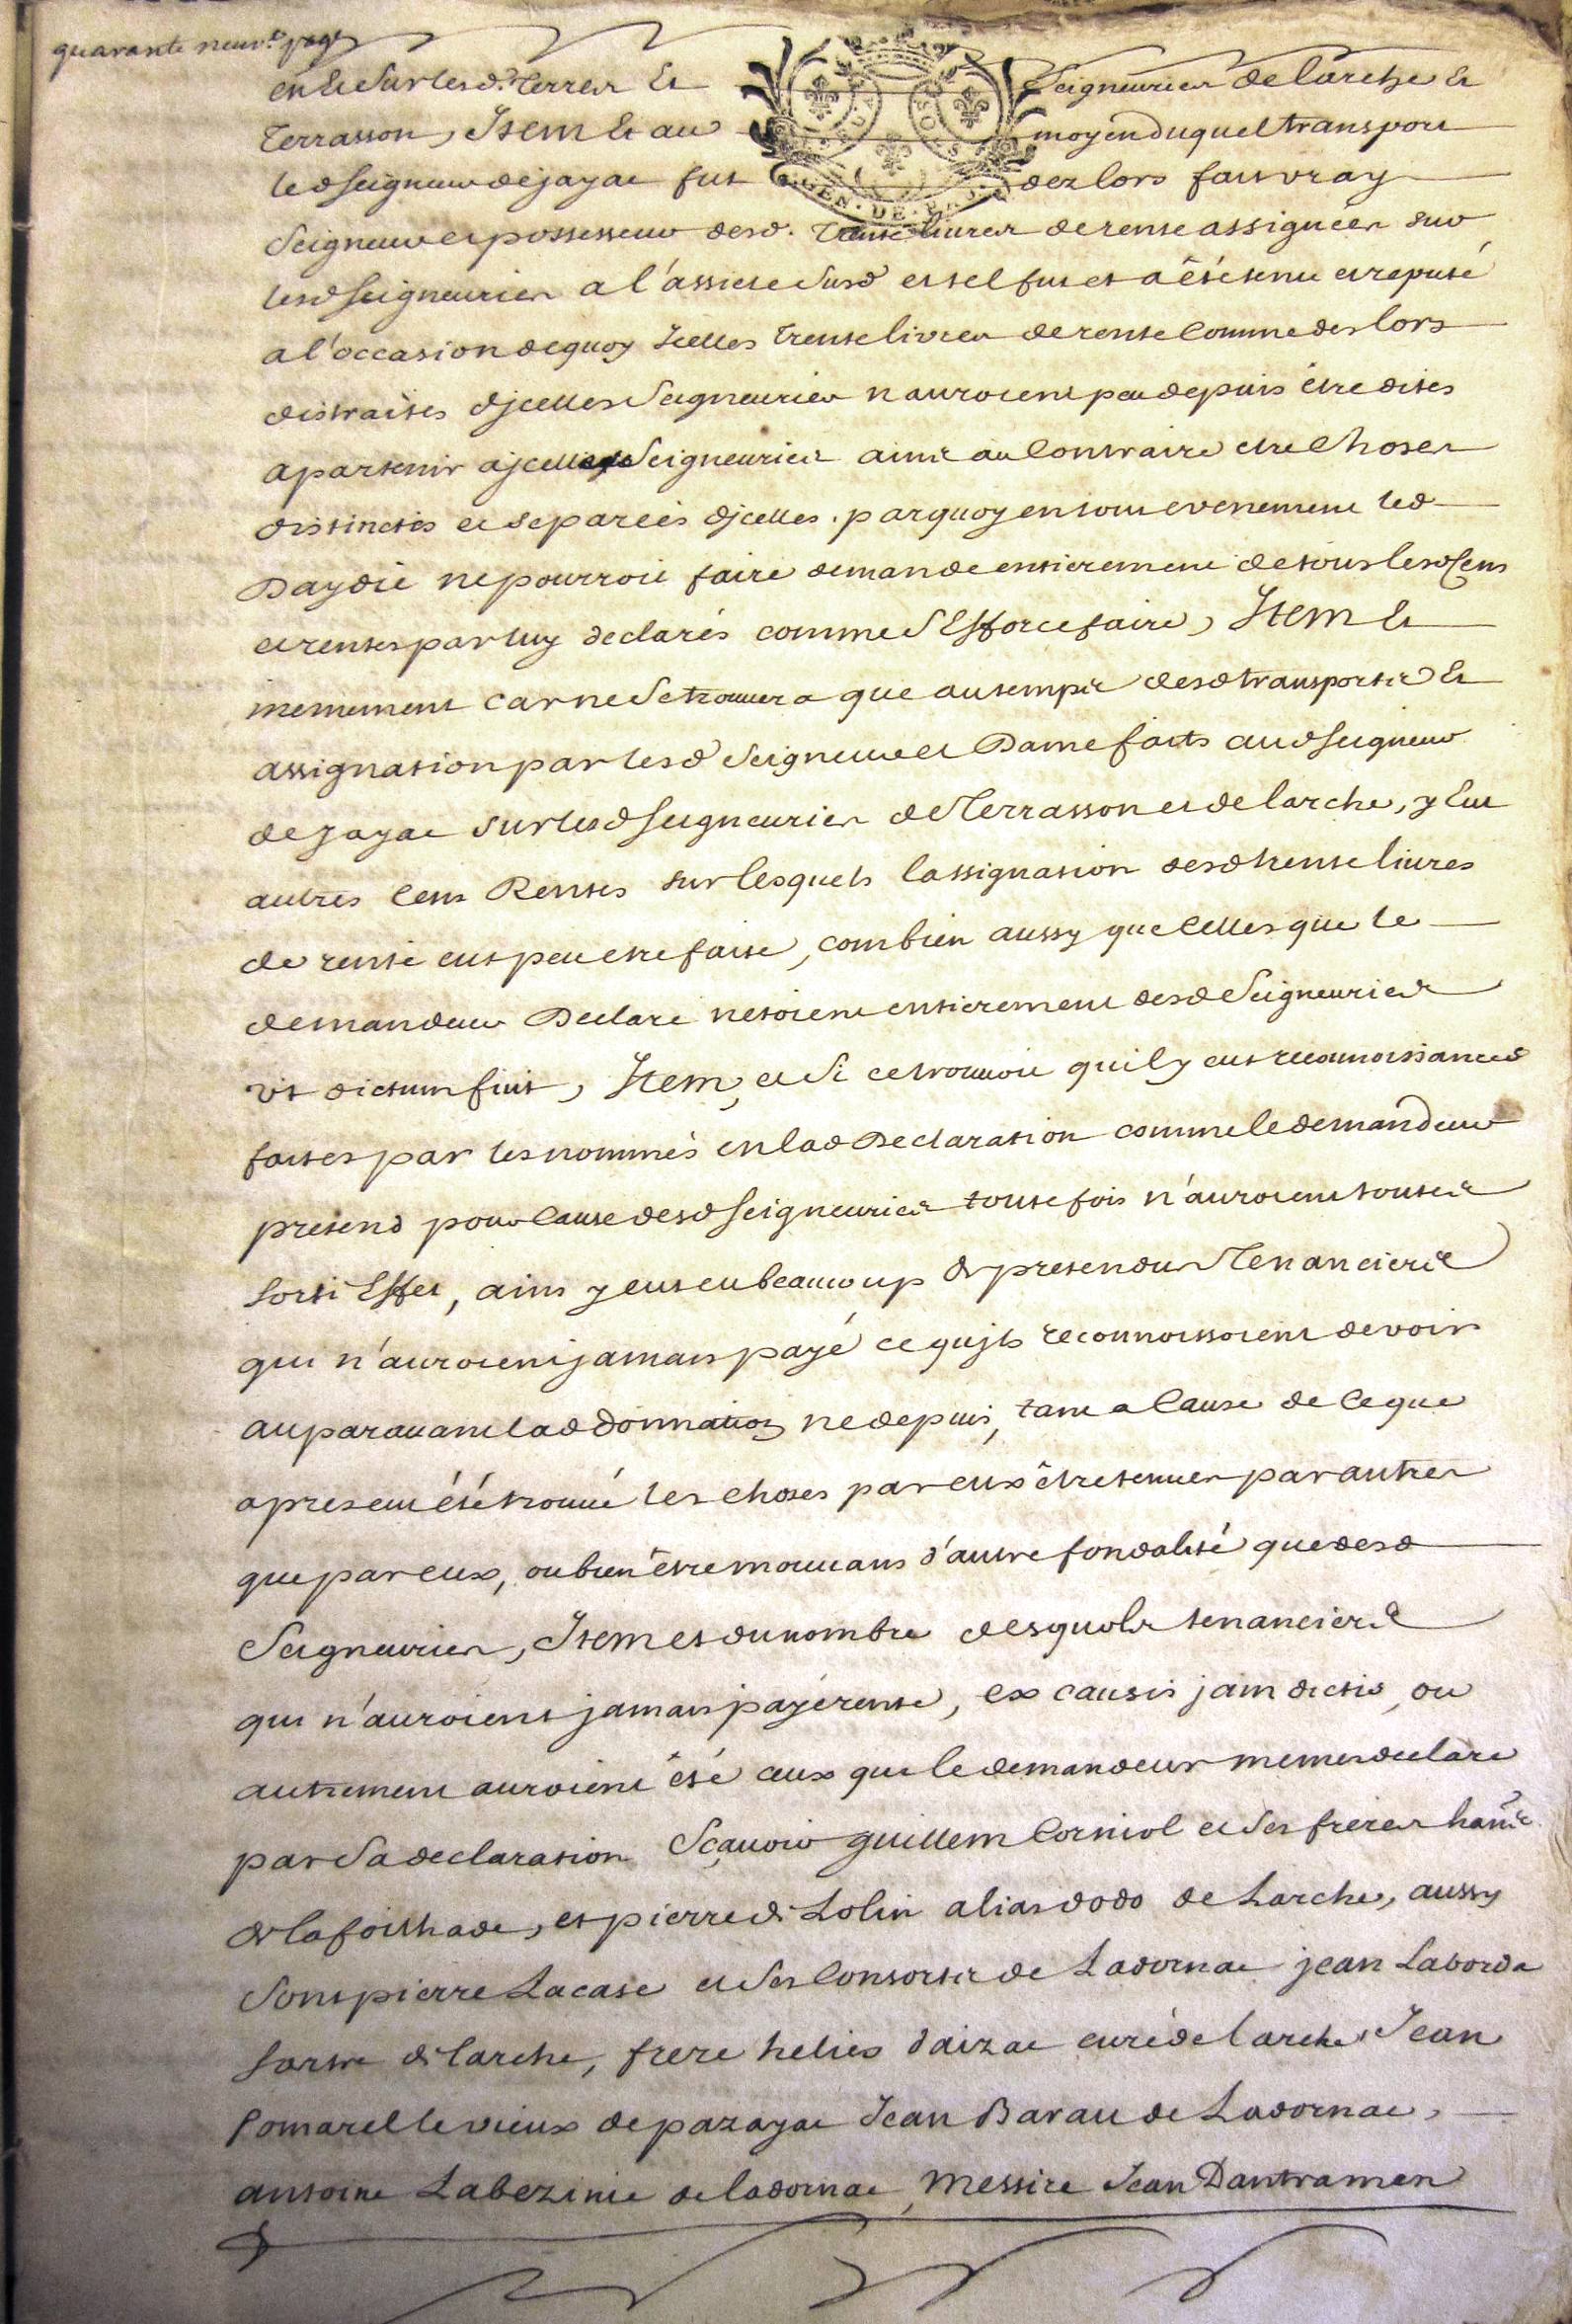 quarante neuv.e page
en et sur lesd. terres et Seigneuries de larche et
Terrasson, Item et au moyen duquel transport
led seigneur de jayac fut dez lors fait vray
Seigneur et possesseur desd. trente livres de rente assignées sur
lesd seigneuries a l'assiete susd et tel fut et a été tenu et reputé
a l'occasion de quoy Icelles trente livres de rente comme des lors
distraites d'jcelles Seigneuries n'auroient peu depuis être dites
apartenir a jcelles Seigneuries ains au contraire etre choses
distinctes et separées d'jcelles. par quoy en tout evenement led
Daydie ne pourroit faire demande entierement de tous lesd Cens
et rentes par luy declarés comme s'Efforce faire, Item et
memement car ne se trouvera que au temps desd transports et
assignation par lesd Seigneur et Dame faits aud seigneur
de jayac sur lesd seigneuries de Terrasson et de larche, y Eut
autres Cens Rentes sur lesquels l'assignation desd trente livres
de rente eut peu etre faite, combien aussy que celles que le
demandeur Declare ne soient entierement desd Seigneuries
ut dictum fuit, Item, et si ce trouvoit qu'il y eut reconnoissances
faites par les nommés en lad Declaration comme le demandeur
pretend pour cause desd seigneuries toutefois n'auroient toutes
sorti Effet, ains y eut eu beaucoup de pretendus Tenanciers
qui n'auroient jamais payé ce qu'jls reconnoissoient devoir
auparavant lad donnation ne depuis, tant a cause de ce que
apres eut été trouvé les choses par eux être tenues par autres
que par eux, ou bien être mouvans d'autre fondalité que desd
Seigneuries, Item et du nombre desquels tenanciers
qui n'auroient jamais payé rente, ex causis jam dictis, ou
autrement auroient été ceux que le demandeur memes declare
par sa declaration Sçavoir guillem Corniol et ses freres han.s
de lafoilhade, et pierre de Lolin alias dodo de Larche, aussy
sont pierre Lacase et ses consorts de Ladornac jean Laborda
sartre de larche, frere helies daizac curé de larche Jean
Pomarel le vieux de pazayac Jean Barau de Ladornac,
antoine Labezinie de ladornac, Messire Jean Dantramen